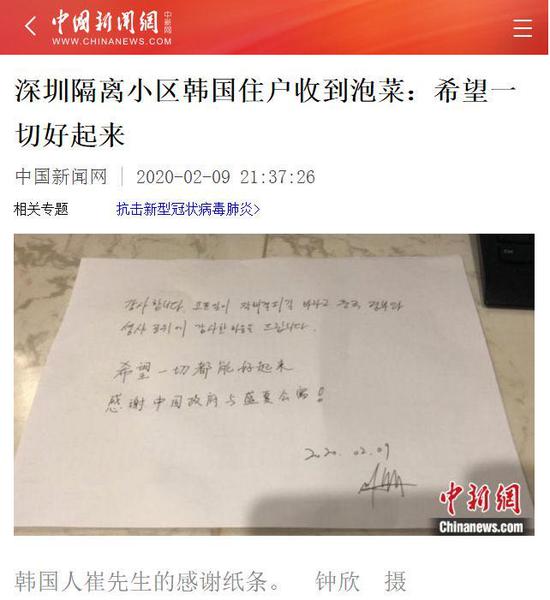 中国新闻網
中新网
WWW.CHINANEWS.COM
深圳隔离小区韩国住户收到泡菜：希望一
切好起来
中国新闻网 | 2020-02-09 21:37:26
相关专题 抗击新型冠状病毒肺炎>
감사합니다. 모든일이 잘해결되길 바라고 중국 정부와
감사한 마음을 드립니다.
希望一切都能好起来
感谢中国政府与盛夏公寓!
2020.02.09
中新網
Chinanews.com
韩国人崔先生的感谢纸条。 钟欣 摄